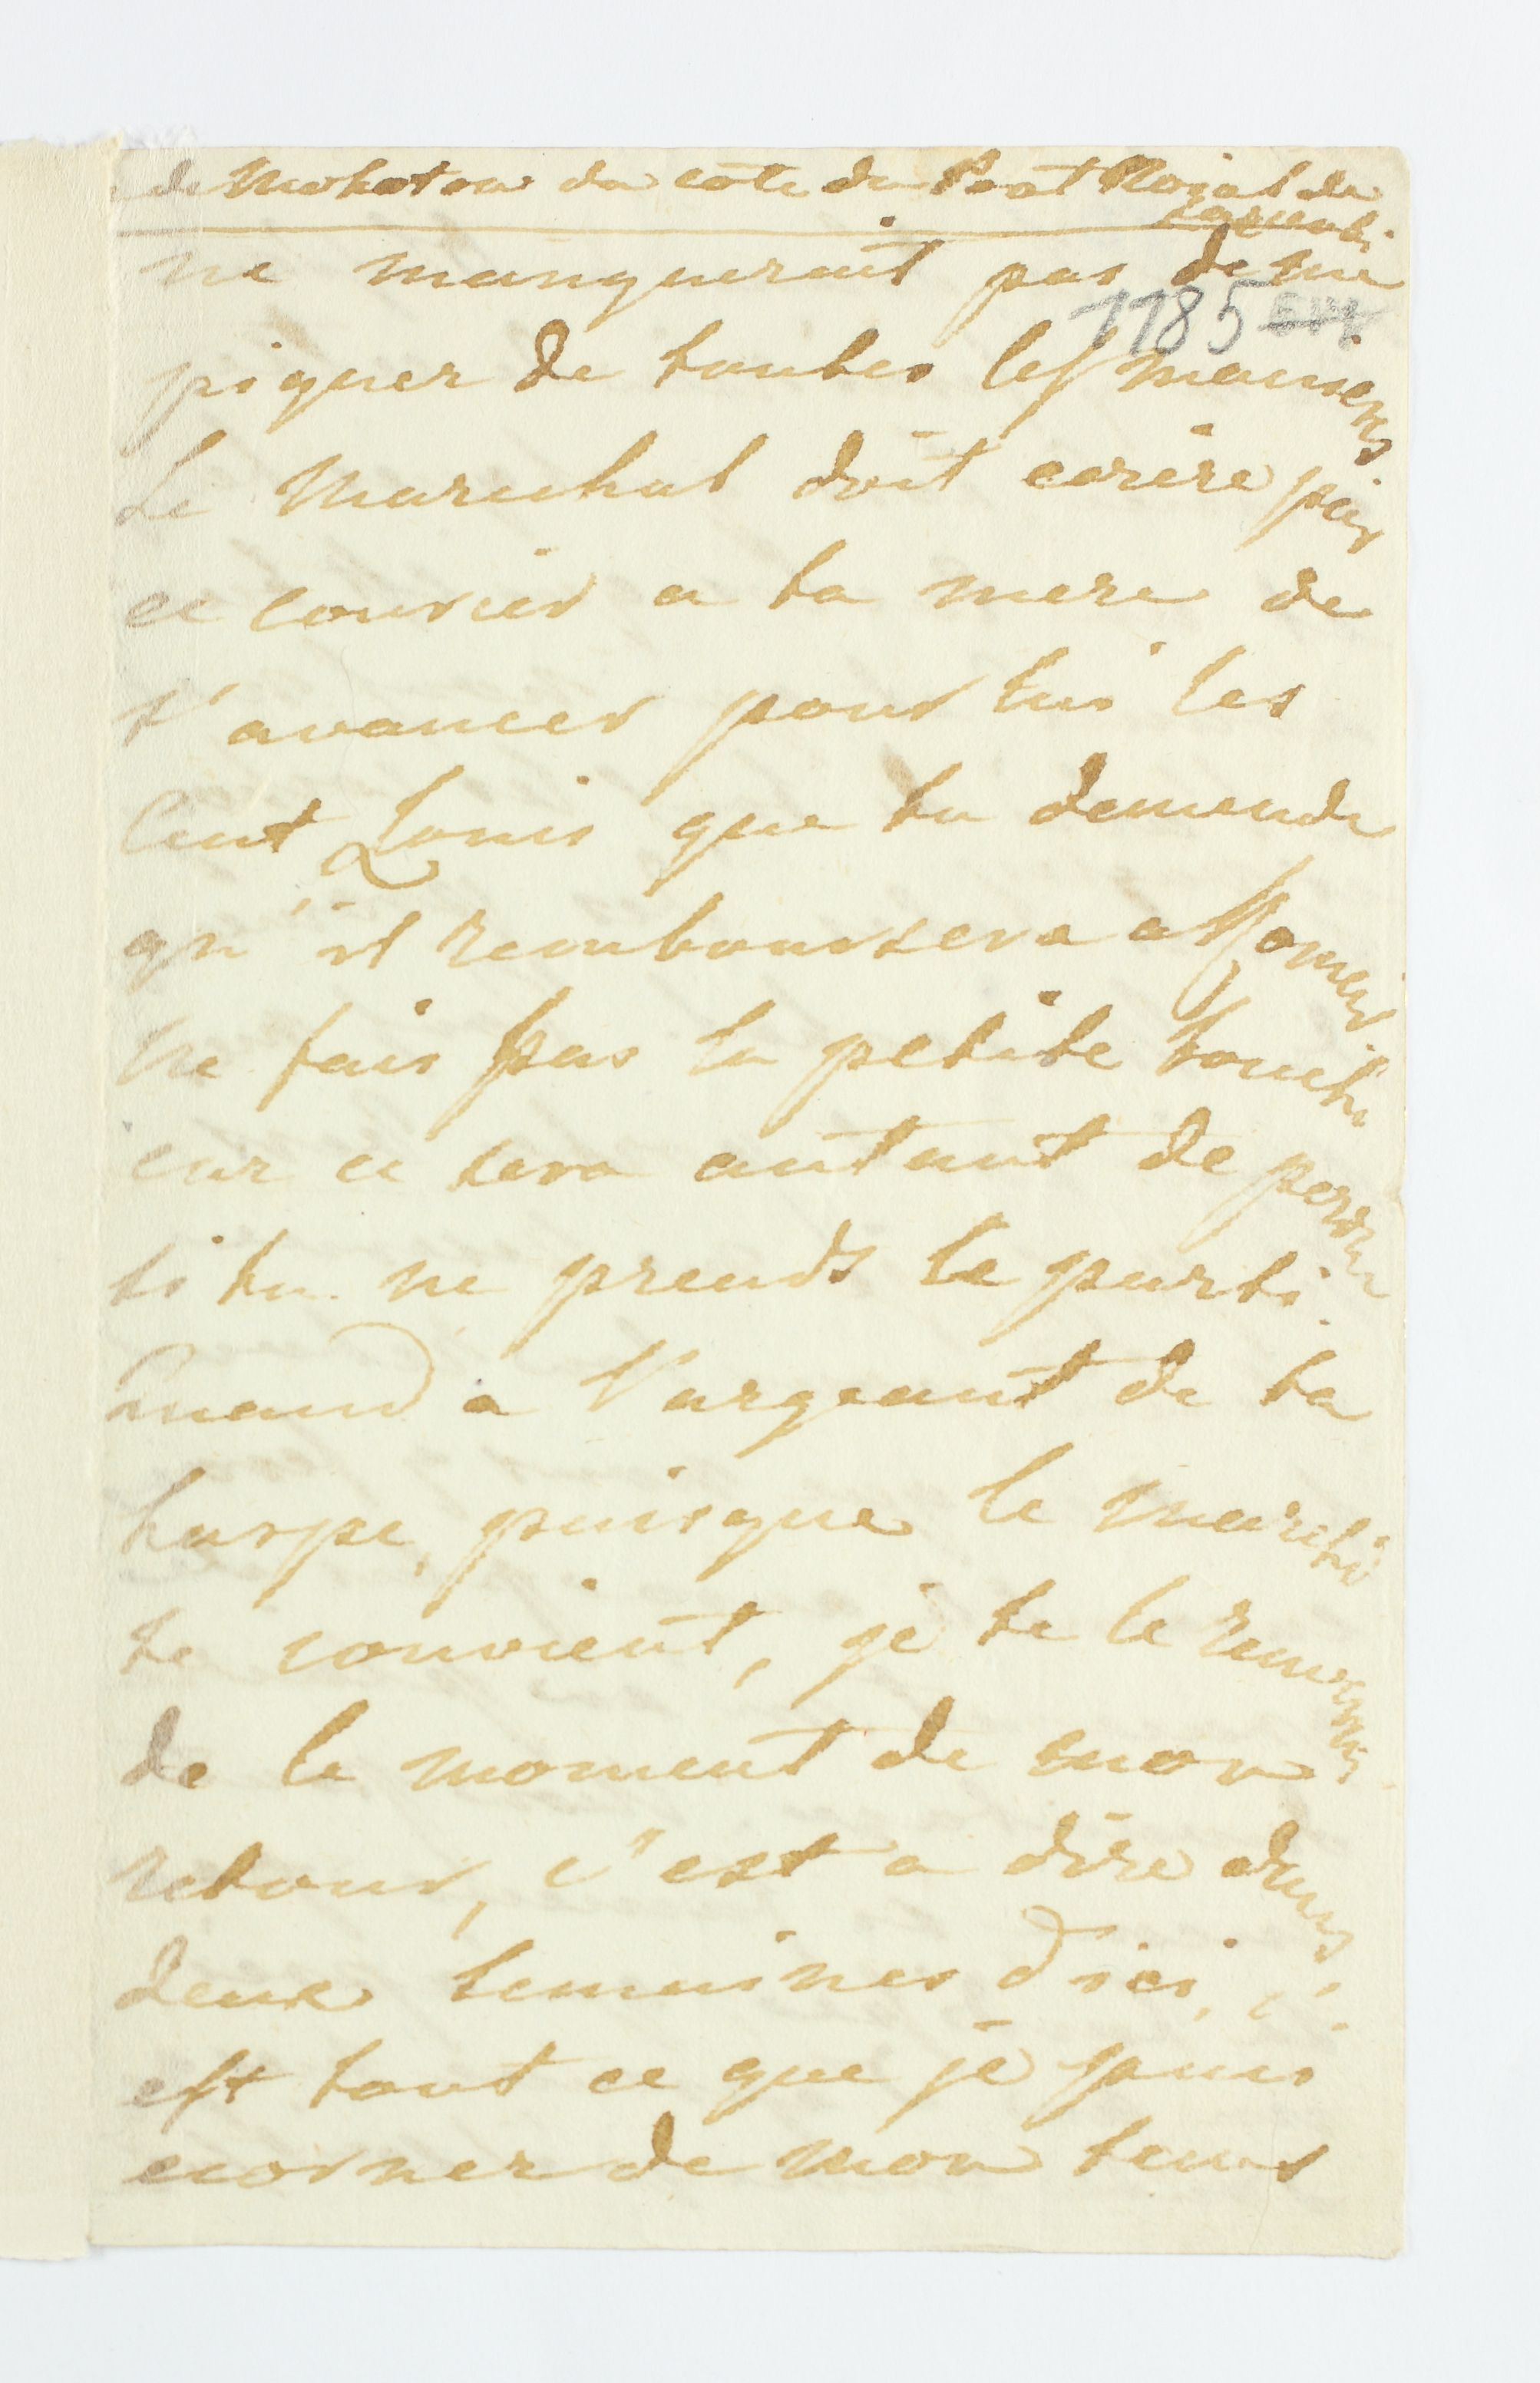 de Mokotow du coté du Pont Roial de
ne manquerait pas de me
1185
piquer de toutes les manieres
Le Marechal doit ecrire par
ce courier a ta mere de
t'avancer pour lui les
Cent Louis que tu demende
qu'il remboursera a
ne fais pas la petite bouche
car ce sera autant de perdu
si tu ne prends le parti.
Quand a l'argeant de ta
harpe, puisque le marché
te convient, je te le
de le moment de mon
retour, c'est a dire dans
deux semaines d'ici, c'
est tout ce que je puis
ecorner de mon tems